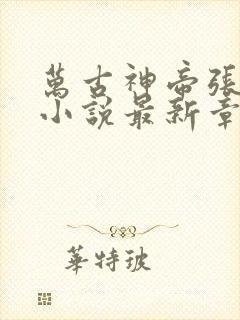 萬古神帝張
小說最新章
華特玻